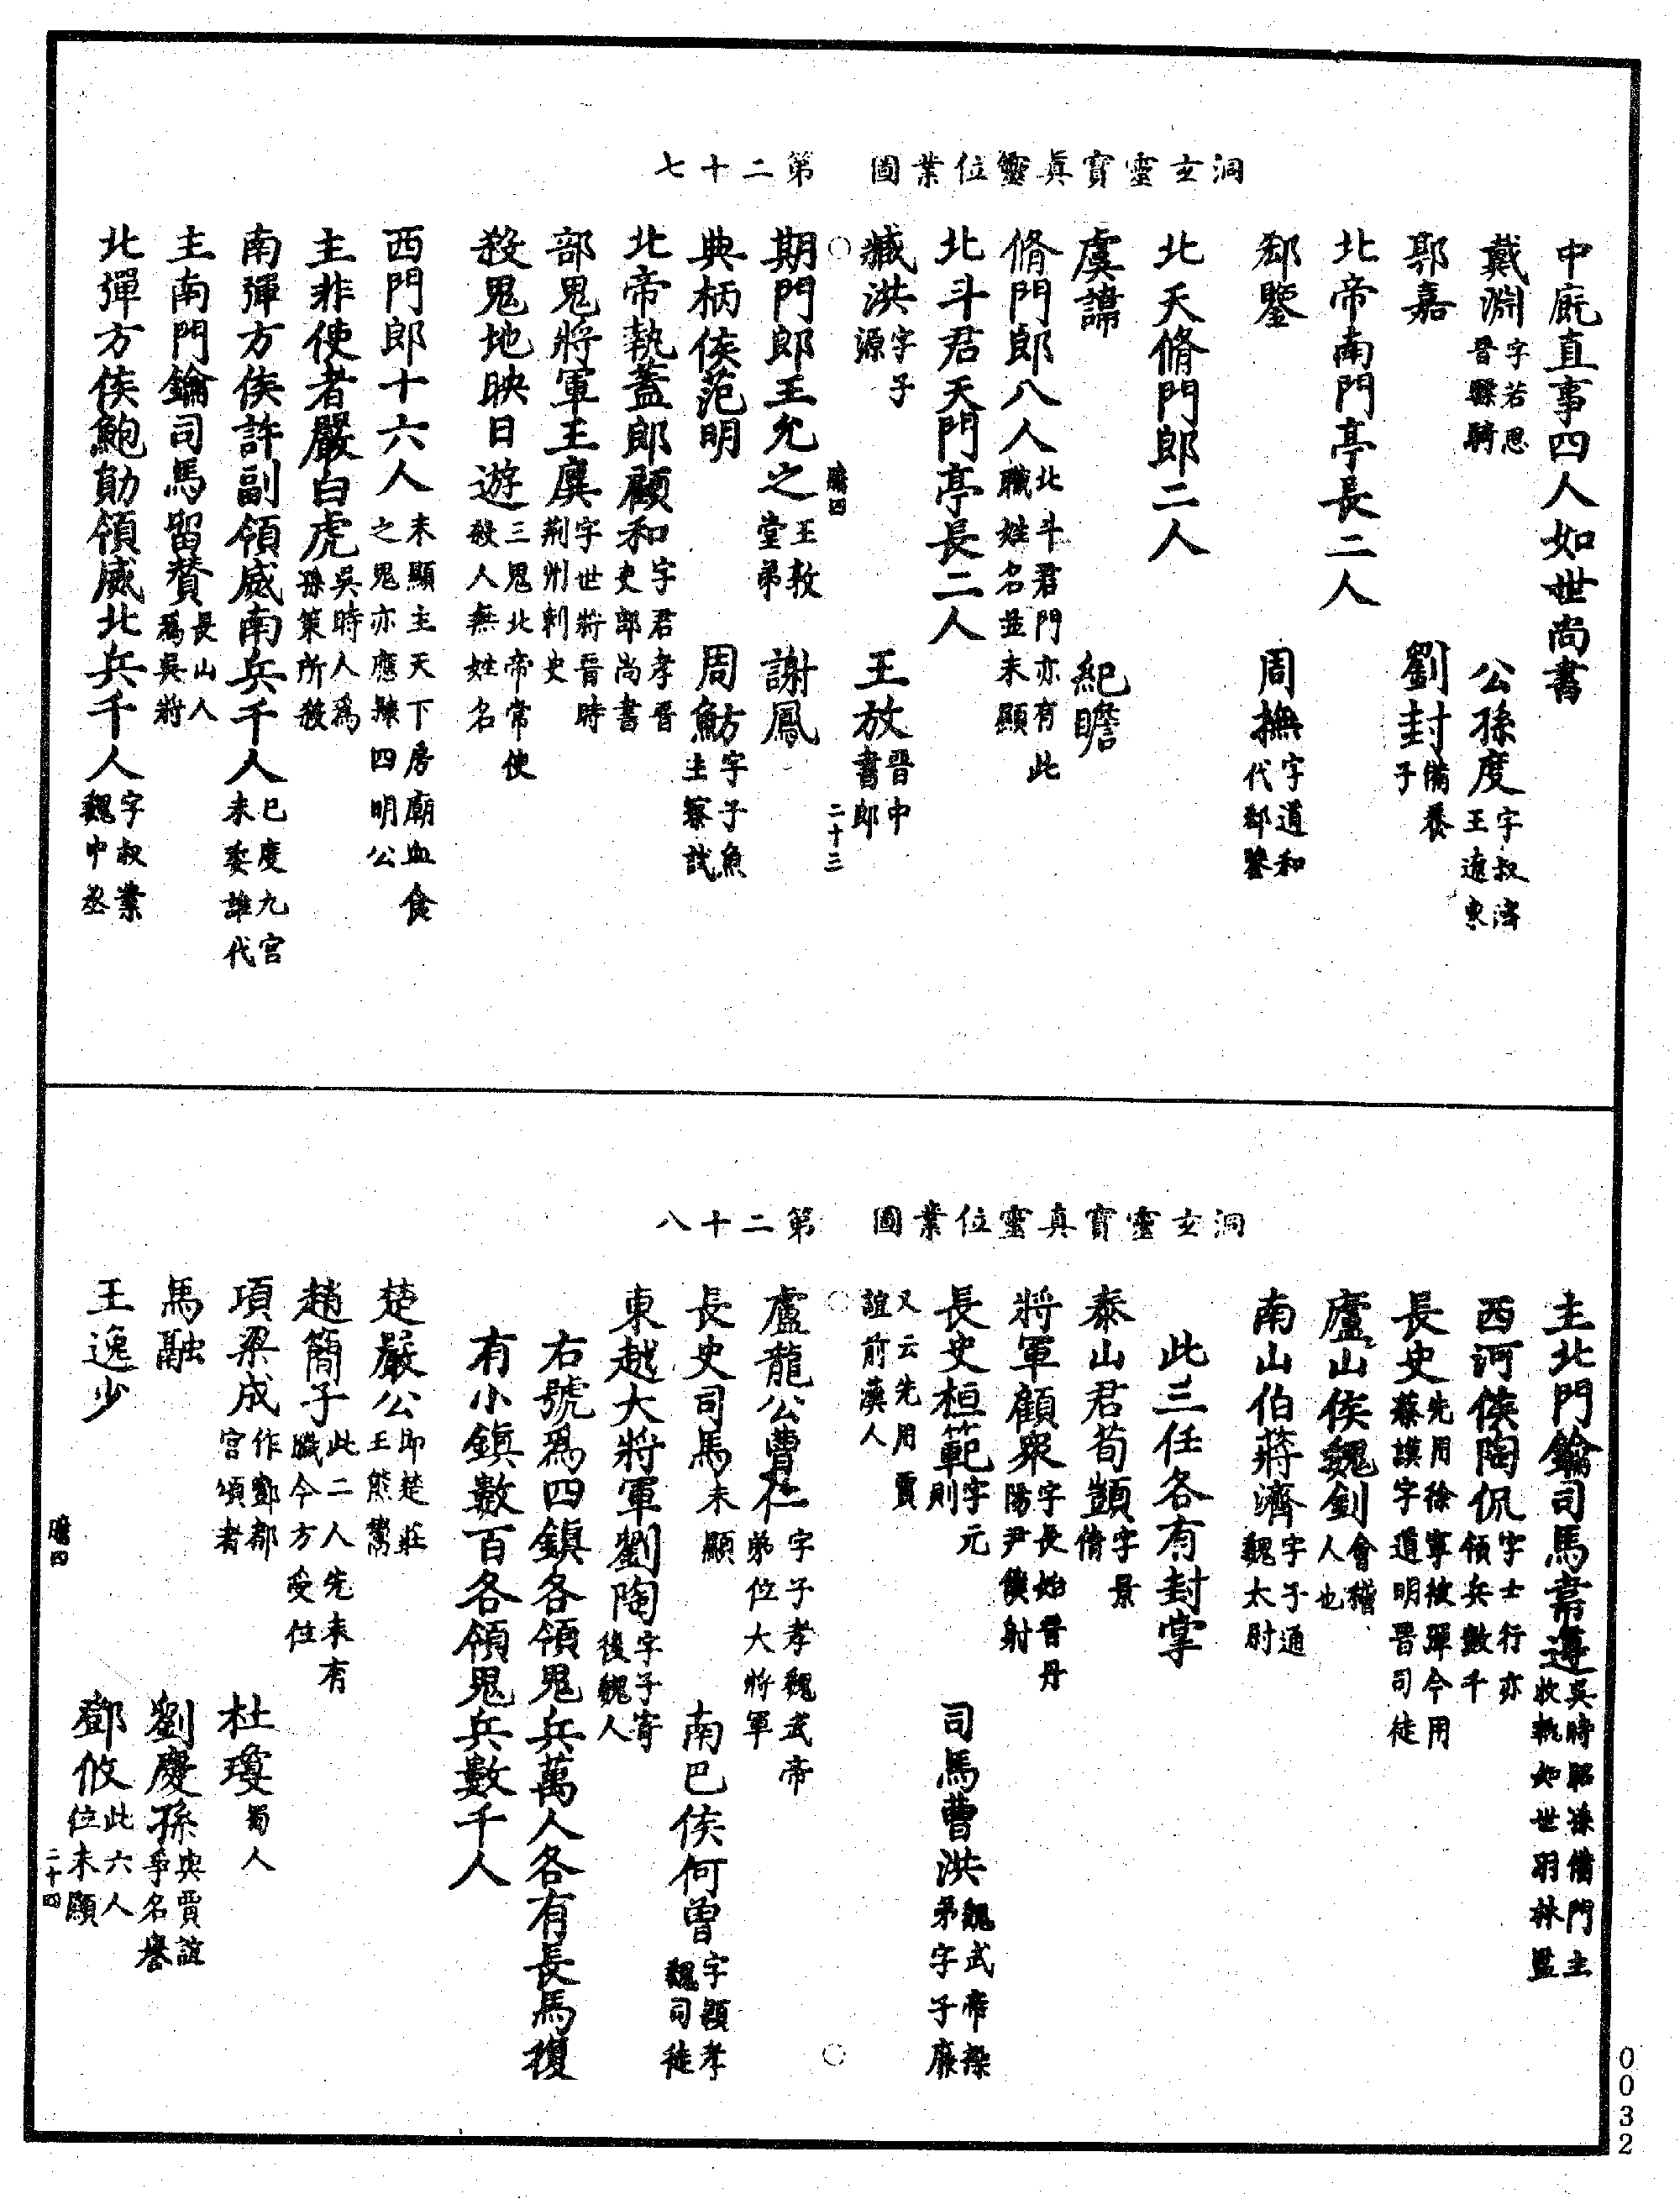 洞玄靈寶真靈位業圖　第二十七
中廐直事四人如世尚書
戴淵字若思晉驃騎　公孫度字叔濟王遼東
郭嘉　劉封備養子
北帝南門亭長二人
郄鑒　周撫字道和代郄鑒
北天脩門郎二人
虞譚　紀瞻
脩門郎八人北斗君門亦有此職姓名並未顯
北斗君天門亭長二人
臧洪字子源　王放晉中書郎
瞻四　二十三
期門郎王允之王敦堂弟　謝鳳
典柄侯范明　周魴字子魚主察試
北帝執蓋郎顧和字君孝晉吏部尚書
部鬼將軍王廙字世將晉時荊州刺史
殺鬼地映日遊三鬼北帝常使殺人無姓名
西門郎十六人未顯主天下房廟血食之鬼亦應隸四明公
主非使者嚴白虎吳時人爲孫策所殺
南彈方侯許副領威南兵千人已度九宮未委誰代
主南門鑰司馬留贊長山人爲吳將
北彈方侯鮑勛領威北兵千人字叔業魏中丞
洞玄靈寶真靈位業圖　第二十八
主北門鑰司馬韋遵吳時昭孫備門主收執如世羽林監
西河侯陶侃字士行亦領兵數千
長史先用徐寧被彈今用蔡謨字道明晉司徒
廬山侯魏釗會稽人也
南山伯蔣濟字子通魏太尉
此三任各有封掌
泰山君荀顗字景倩
將軍顧衆字長始晉丹陽尹僕射
長史桓範字元則　司馬曹洪魏武帝從弟字子廉
又云先用賈誼前漢人
盧龍公曹仁字子孝魏武帝弟位大將軍
長史司馬未顯　南巴侯何曾字穎孝魏司徒
東越大將軍劉陶字子奇後魏人
右號爲四鎮各領鬼兵萬人各有長馬復
有小鎮數百各領鬼兵數千人
楚嚴公即楚莊王熊鬻
趙簡子此二人先未有職今方受位
項梁成作酆都宮頌者　杜瓊蜀人
馬融　劉慶孫與賈誼爭名譽
王逸少　鄧攸此六人位未顯
瞻四　二十四
0032